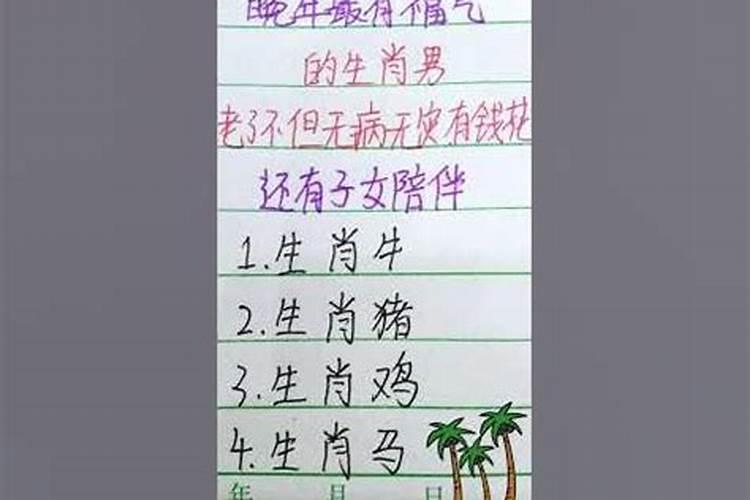 晚年最有福气
的生肖男
老了不但无病无灾有钱花
还有子女陪伴
1.生肖牛
2.生肖猪
3.生肖鸡
4.生肖马
年 月 日